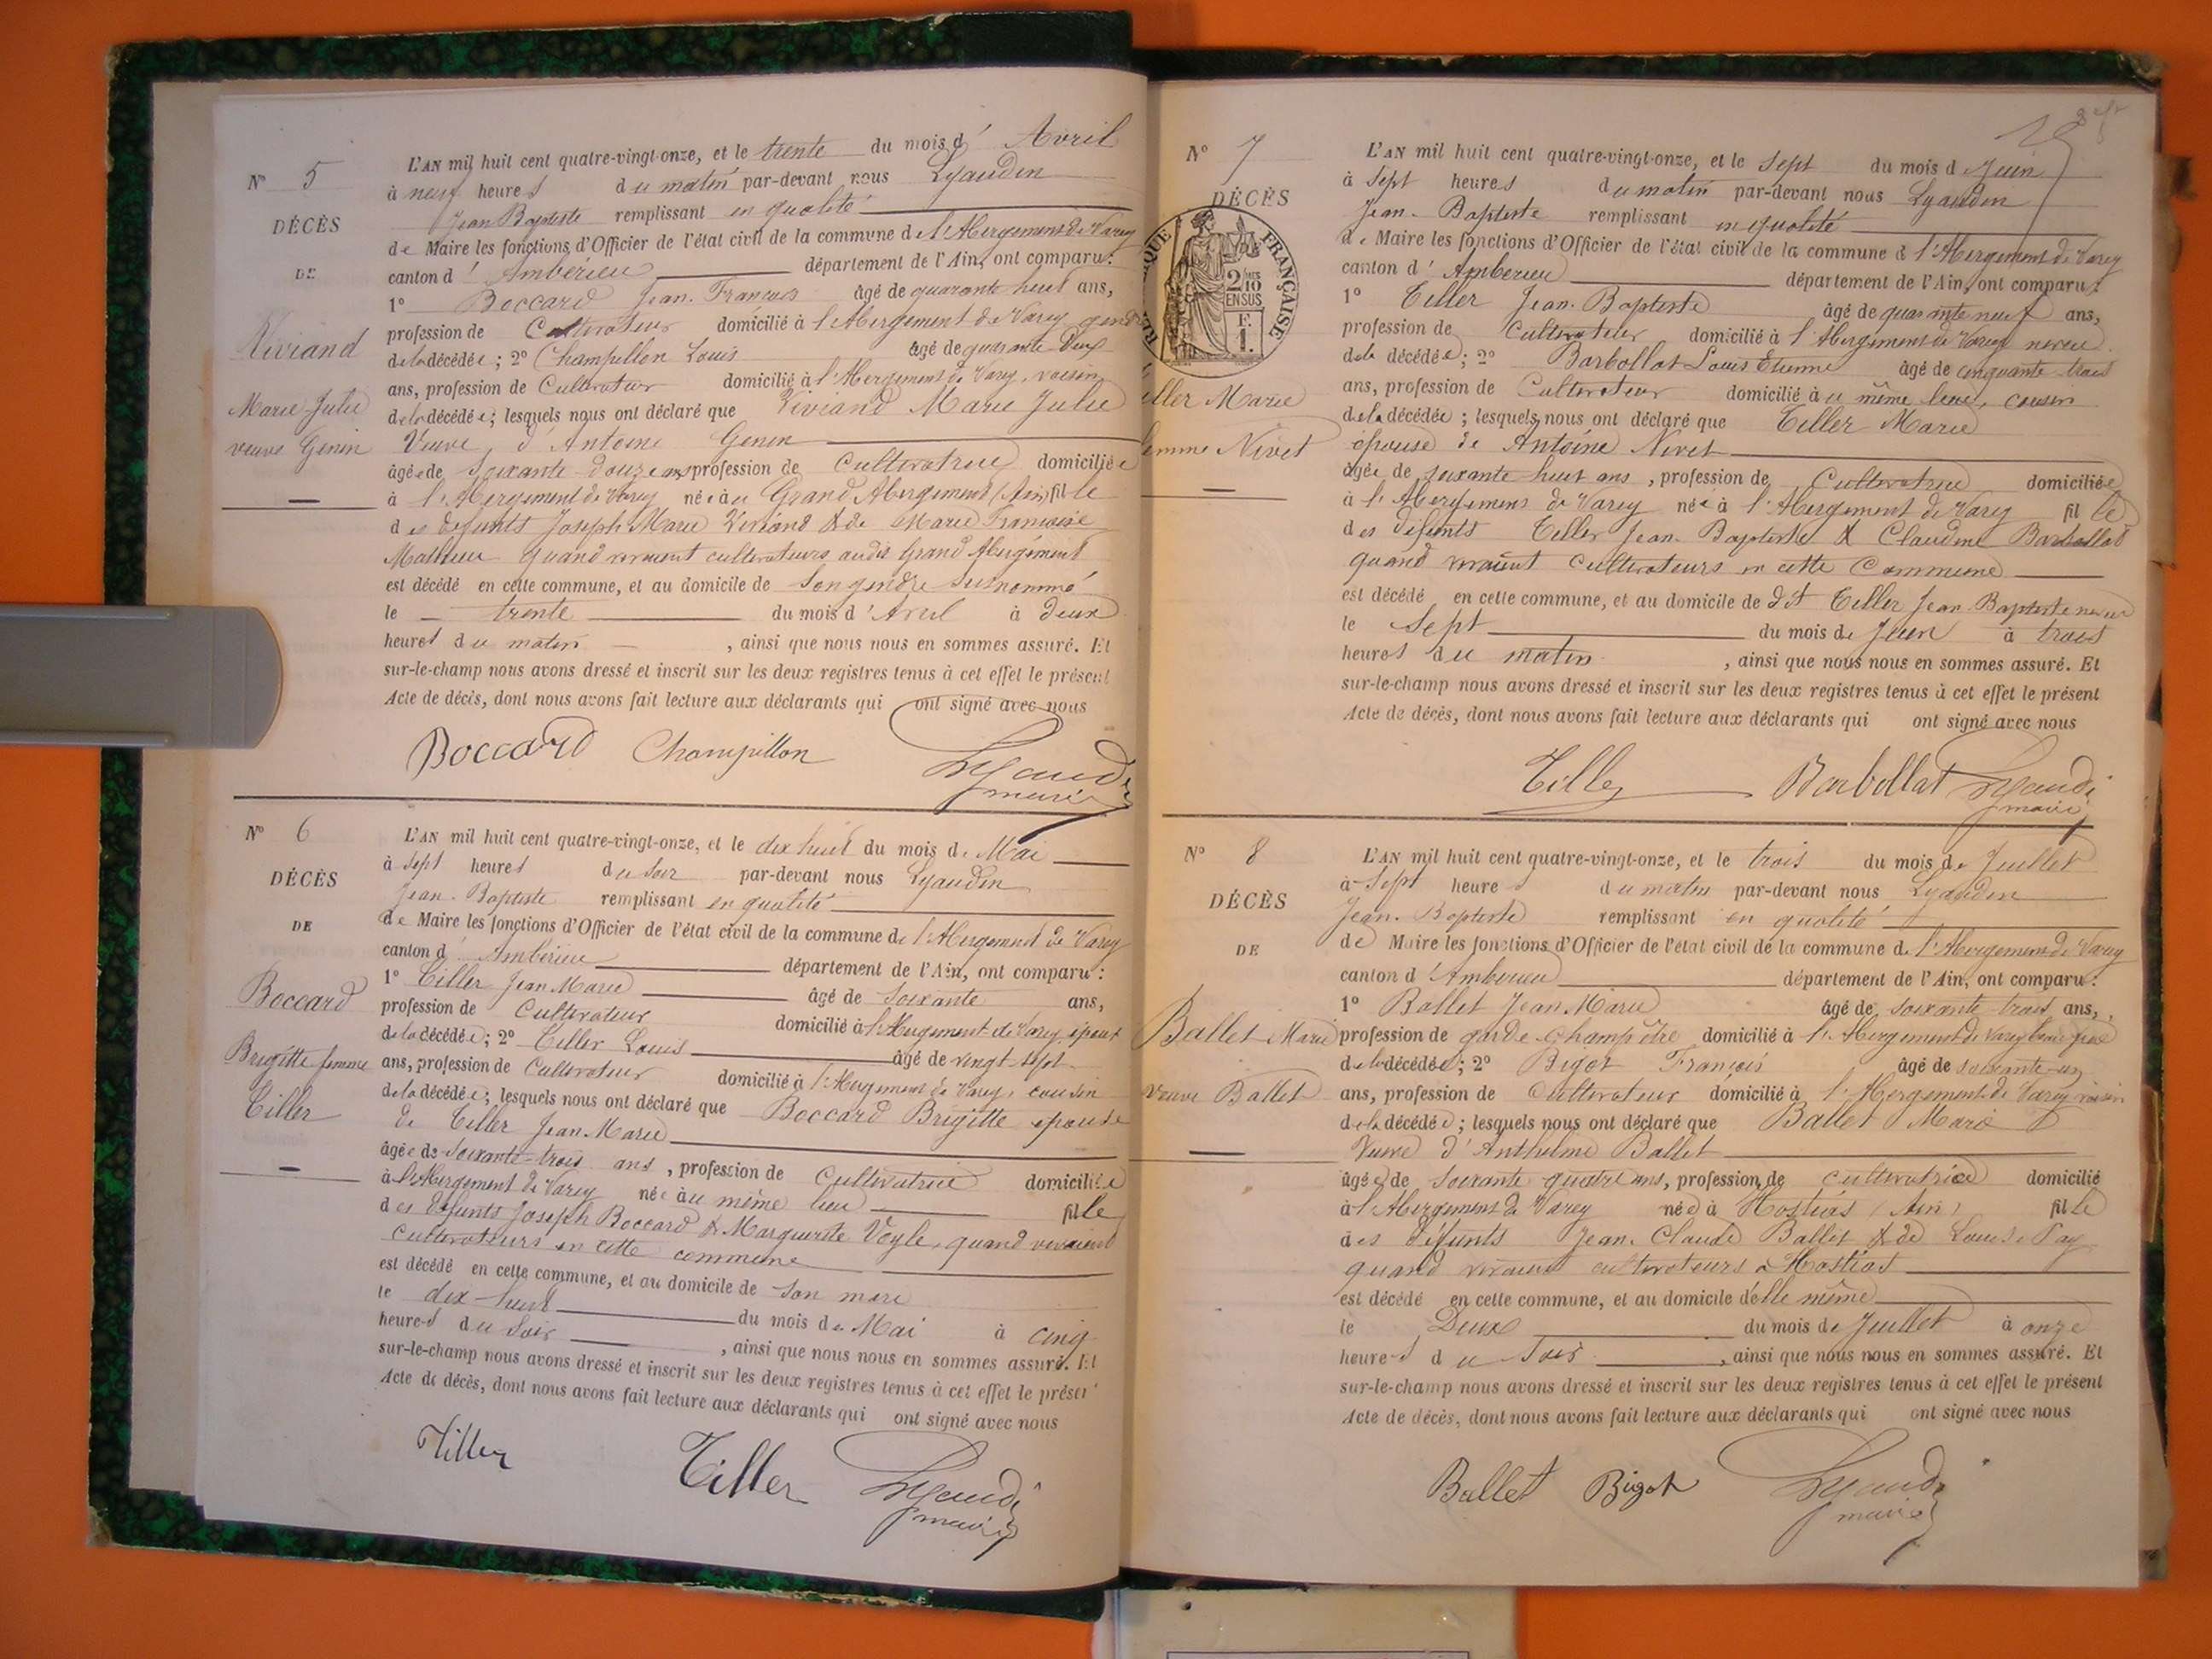 N° 5
DÉCÈS
DE
Viviand
Marie Julie
veuve Genin
L'AN mil huit cent quatre-vingt-onze, et le trente du mois d' Avril
à neuf heures du matin par-devant nous Lyaudin
Jean Baptiste remplissant en qualité
de Maire les fonctions d'Officier de l'état civil de la commune de l'Abergement de Varey
canton d' Ambérieu département de l'Ain, ont comparu:
1° Boccard Jean-François âgé de quarante huit ans,
profession de Cultivateur domicilié à l'Abergement de Varey gendre
de la décédée; 2° Champillon Louis âgé de quarante deux
ans, profession de Cultivateur domicilié à l'Abergement de Varey, voisin
de la décédée; lesquels nous ont déclaré que Viviand Marie Julie
Veuve d'Antoine Genin
âgée de soixante-douze ans profession de Cultivatrice domiciliée
à l'Abergement de Varey née au Grand Abergement (Ain) fille
des défunts Joseph Marie Viviand & de Marie Françoise
Mathieu quand vivaient cultivateurs audit Grand Abergement
est décédé en cette commune, et au domicile de son gendre susnommé
le trente du mois d'Avril à deux
heures du matin, ainsi que nous nous en sommes assuré. Et
sur-le-champ nous avons dressé et inscrit sur les deux registres tenus à cet effet le présent
Acte de décès, dont nous avons fait lecture aux déclarants qui ont signé avec nous
Boccard Champillon Lyaudin
maire
N° 6
DÉCÈS
DE
Boccard
Brigitte femme
Tiller
L'AN mil huit cent quatre-vingt-onze, et le dix huit du mois de Mai
à sept heures du soir par-devant nous Lyaudin
Jean-Baptiste remplissant en qualité
de Maire les fonctions d'Officier de l'état civil de la commune de l'Abergement de Varey
canton d' Ambérieu département de l'Ain, ont comparu:
1° Tiller Jean Marie âgé de soixante ans,
profession de Cultivateur domicilié à l'Abergement de Varey, époux
de la décédée; 2° Tiller Louis âgé de vingt-sept
ans, profession de Cultivateur domicilié à l'Abergement de Varey, cousin
de la décédée; lesquels nous ont déclaré que Boccard Brigitte épouse
de Tiller Jean Marie
âgée de soixante-trois ans, profession de Cultivatrice domiciliée
à l'Abergement de Varey née au même lieu fille
des défunts Joseph Boccard & Marguerite Voyle, quand vivaient
cultivateurs en cette commune
est décédé en cette commune, et au domicile de son mari
le dix-huit du mois de Mai à cinq
heures du soir, ainsi que nous nous en sommes assuré. Et
sur-le-champ nous avons dressé et inscrit sur les deux registres tenus à cet effet le présent
Acte de décès, dont nous avons fait lecture aux déclarants qui ont signé avec nous
Tiller Tiller Lyaudin
maire
N° 7
DÉCÈS
FRANÇAISE
2/10
EN SUS
F.
1.
Tiller Marie
femme Nivet
L'AN mil huit cent quatre-vingt-onze, et le sept du mois de Juin
à sept heures du matin par-devant nous Lyaudin
Jean-Baptiste remplissant en qualité
de Maire les fonctions d'Officier de l'état civil de la commune de l'Abergement de Varey
canton d' Ambérieu département de l'Ain, ont comparu:
1° Tiller Jean-Baptiste âgé de quarante neuf ans,
profession de Cultivateur domicilié à l'Abergement de Varey neveu
de la décédée; 2° Barbollat Louis Etienne âgé de cinquante-trois
ans, profession de Cultivateur domicilié au même lieu, cousin
de la décédée; lesquels nous ont déclaré que Tiller Marie
épouse de Antoine Nivet
âgée de soixante huit ans, profession de Cultivatrice domiciliée
à l'Abergement de Varey née à l'Abergement de Varey fille
des défunts Tiller Jean-Baptiste & Claudine Barbollat
quand vivaient cultivateurs en cette Commune
est décédé en cette commune, et au domicile de dit Tiller Jean Baptiste neveu
le sept du mois de Juin à trois
heures du matin, ainsi que nous nous en sommes assuré. Et
sur-le-champ nous avons dressé et inscrit sur les deux registres tenus à cet effet le présent
Acte de décès, dont nous avons fait lecture aux déclarants qui ont signé avec nous
Tiller Barbollat Lyaudin
maire
N° 8
DÉCÈS
DE
Ballet Marie
Veuve Ballet
L'AN mil huit cent quatre-vingt-onze, et le trois du mois de Juillet
à sept heures du matin par-devant nous Lyaudin
Jean-Baptiste remplissant en qualité
de Maire les fonctions d'Officier de l'état civil de la commune de l'Abergement de Varey
canton d'Ambérieu département de l'Ain, ont comparu:
1° Ballet Jean Marie âgé de soixante trois ans,
profession de garde-champêtre domicilié à l'Abergement de Varey
de la décédée; 2° Bigot François âgé de soixante-un
ans, profession de Cultivateur domicilié à l'Abergement de Varey voisin
de la décédée; lesquels nous ont déclaré que Ballet Marie
Veuve d'Anthelme Ballet
âgée de soixante quatre ans, profession de cultivatrice domicilié
à l'Abergement de Varey née à Hostias (Ain) fille
des défunts Jean-Claude Ballet & de Louise Pay
quand vivaient cultivateurs à Hostias
est décédé en cette commune, et au domicile d'elle même
le Deux du mois de Juillet à onze
heures du soir, ainsi que nous nous en sommes assuré. Et
sur-le-champ nous avons dressé et inscrit sur les deux registres tenus à cet effet le présent
Acte de décès, dont nous avons fait lecture aux déclarants qui ont signé avec nous
Ballet Bigot Lyaudin
maire